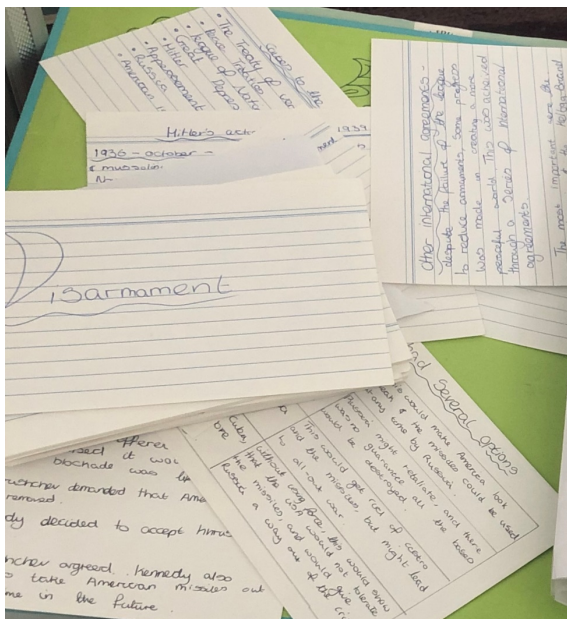 Causes to the
• The Treaty of Ver
• Peace Treaties
• League of Nato
• Great Depres
• Hitler
• Appeasement
• Russia
• American
Hitler's acti
1936 - october -
& mussolin
1939
Other international agreements -
despite the failure of the league
to reduce armaments some progress
was made in creating a more
peaceful world. This was acheived
through a series of international
agreements
The most important were the
Kellog-Briand
Disarmament
and Several options
would make America look
weak & the missiles could be used
at any time by Russia.
Russia might retaliate, and there
was no guarantee all the bases
would be destroyed.
This would get rid of castro
and the missiles, but might lead
to all-out war
without using force, this would show
that the USA would not tolerate
the missiles, and would give
Russia a way out of the cri
Cuba,
one
used it wou
blockade was
demanded that Ame
removed.
dy decided to accept
argreed. Kennedy also
take American missiles out
me in the future.